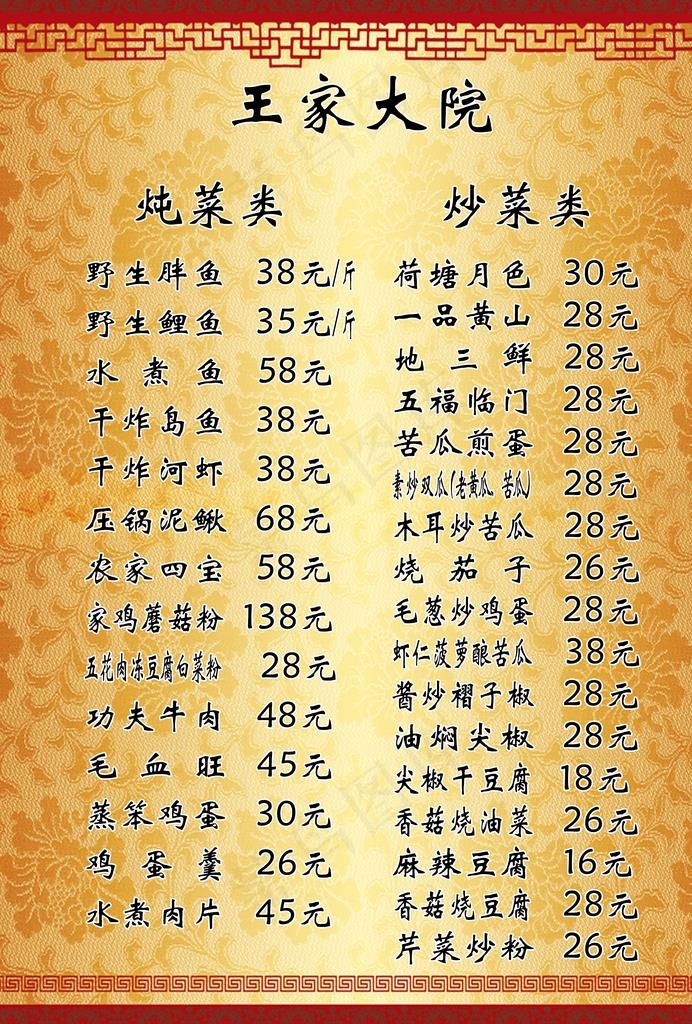 王家大院
炖菜类
野生胖鱼 38元/斤
野生鲤鱼 35元/斤
水煮鱼 58元
干炸岛鱼 38元
干炸河虾 38元
压锅泥鳅 68元
农家四宝 58元
家鸡蘑菇粉 138元
五花肉冻豆腐白菜粉 28元
功夫牛肉 48元
毛血旺 45元
蒸笨鸡蛋 30元
鸡蛋羹 26元
水煮肉片 45元
炒菜类
荷塘月色 30元
一品黄山 28元
地三鲜 28元
五福临门 28元
苦瓜煎蛋 28元
素炒双瓜(老黄瓜 苦瓜) 28元
木耳炒苦瓜 28元
烧茄子 26元
毛葱炒鸡蛋 28元
虾仁菠萝酿苦瓜 38元
酱炒褶子椒 28元
油焖尖椒 28元
尖椒干豆腐 18元
香菇烧油菜 26元
麻辣豆腐 16元
香菇烧豆腐 28元
芹菜炒粉 26元